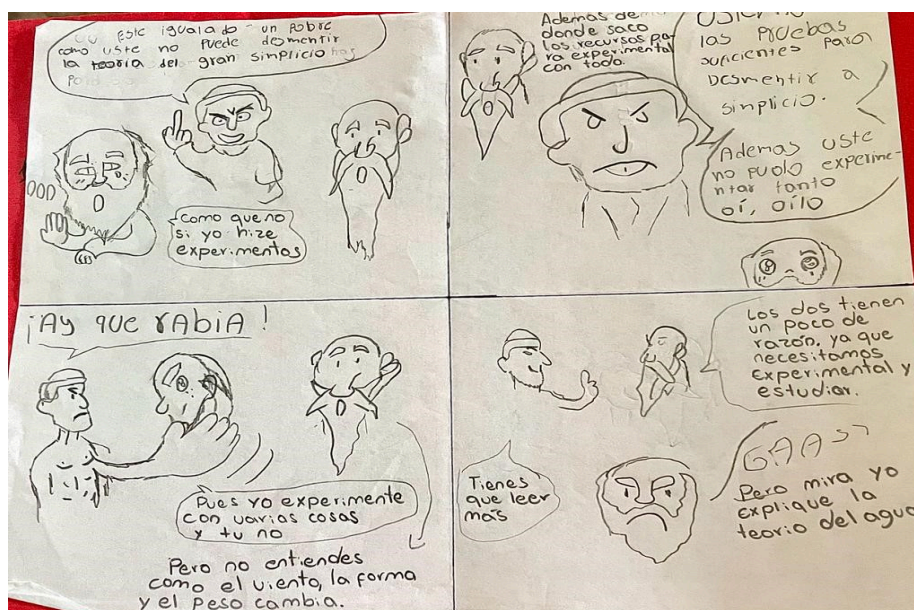 este igualado - un pobre
como uste no puede desmentir
la teoria del gran simplicio
Como que no
si yo hize
experimentos
Ademas de
donde saco
los recursos pa
ra experimental
con todo.
las pruebas
suficientes para
Desmentir a
simplicio.
Ademas uste
no pudo experime-
ntar tanto
oí, oílo
¡Ay que rAbiA!
Pues yo experimente
con varias cosas
y tu no
Pero no entiendes
como el viento, la forma
y el peso cambia.
Los dos tienen
un poco de
razón. ya que
necesitamos
experimental y
estudiar.
Tienes
que leer
más
GAAS
Pero mira yo
explique la
teorio del agua